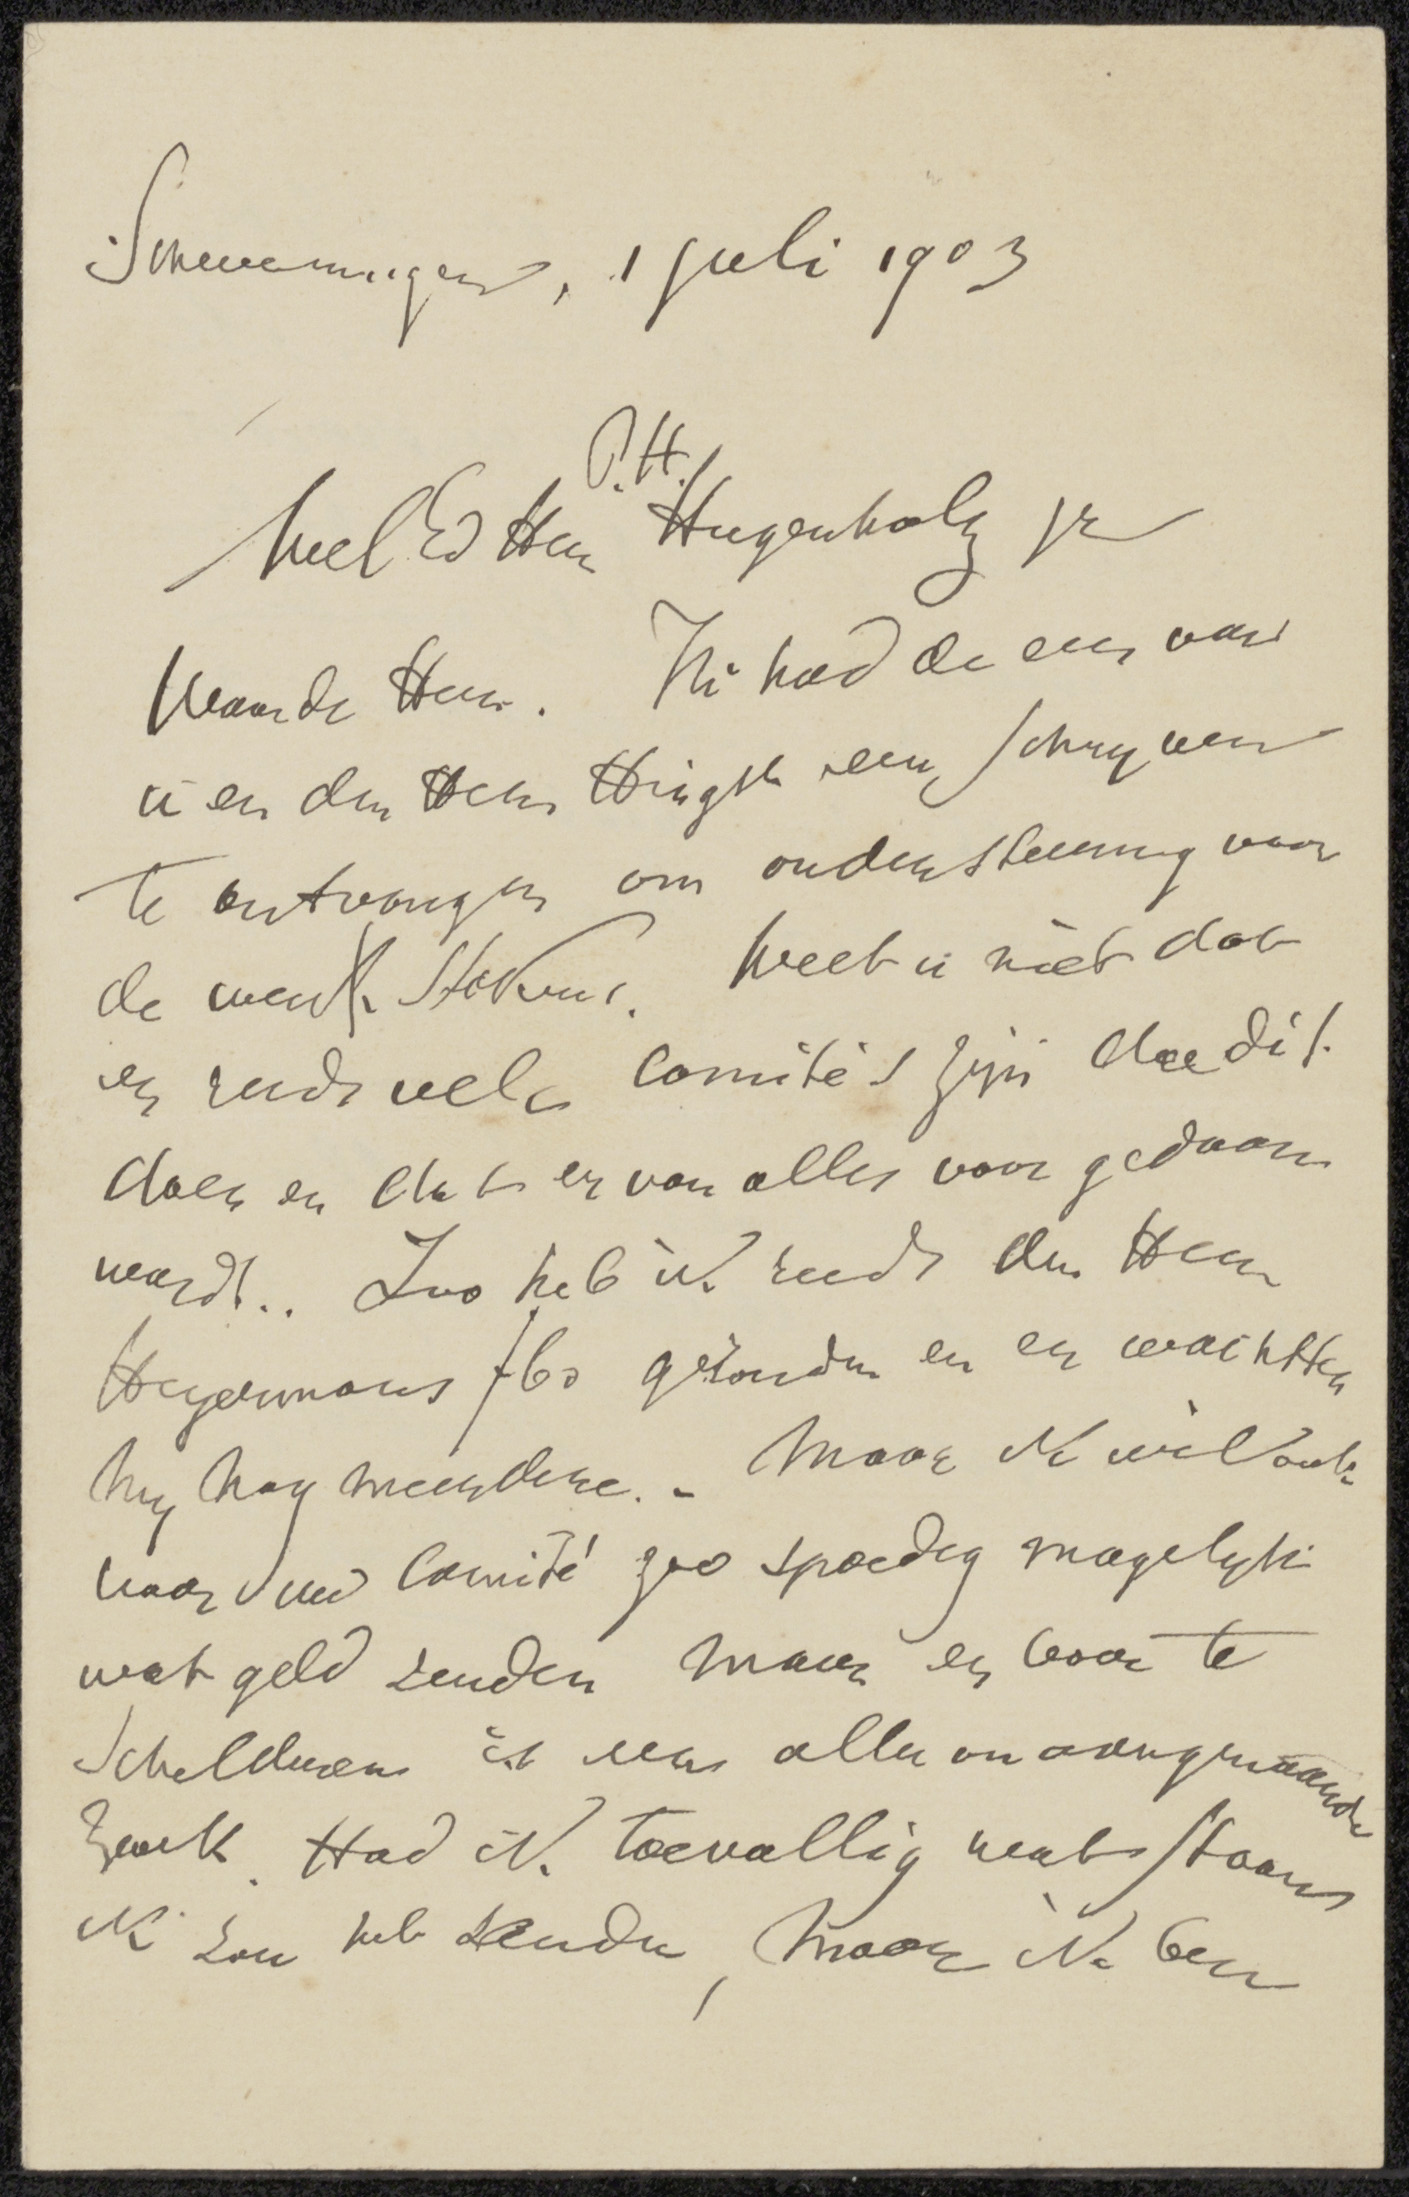 Scheveningen, 1 Juli 1903
P.H.
Wel Ed Heer Hugenholz jr
Waarde Heer. Ik had de eer van
u en den Heer Hingst een schryven
te ontvangen om ondersteuning voor
de werkstakers. Weet u niet dat
er reeds vele Comité's zyn die dit
doen en dat er van alles voor gedaan
wordt.. Zoo heb ik reeds den Heer
Heyermans f 60 gezonden en er wachtten
my nog meerdere. - Maar ik wil ook
voor uw Comité zoo spoedig mogelyk
wat geld zenden maar er voor te
Schilderen is een aller onaangenaamste
werk. Had ik toevallig wat staan
ik zou het zenden, maar ik ben